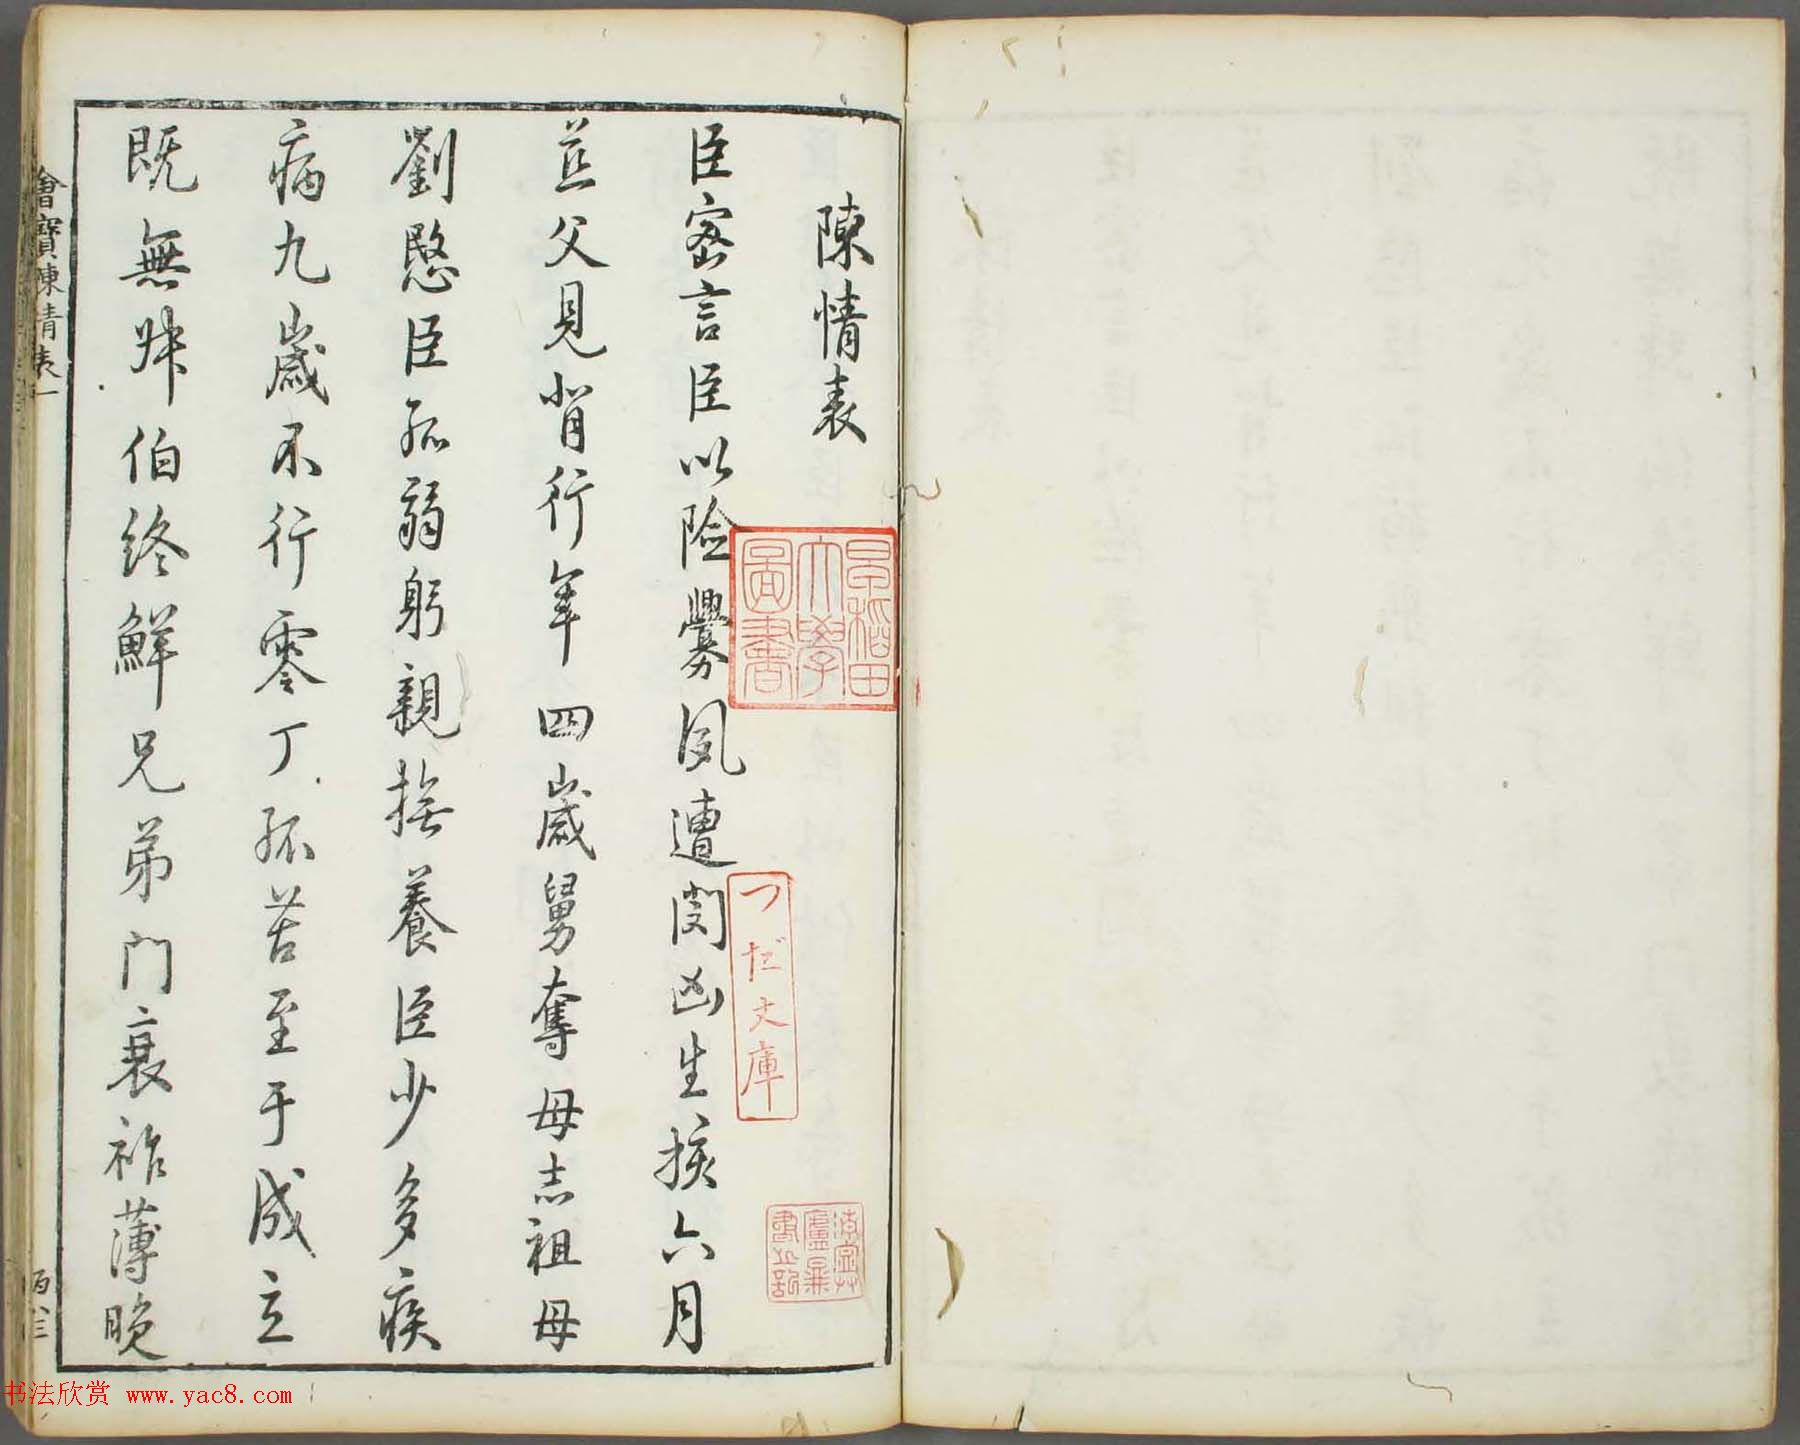 陳情表
臣密言臣以險釁夙遭閔凶生孩六月
慈父見背行年四歲舅奪母志祖母
劉愍臣孤弱躬親撫養臣少多疾
病九歲不行零丁孤苦至于成立
既無叔伯終鮮兄弟門衰祚薄晚
早稻田
大學
圖書
つだ文庫
會寶陳情表一
书法欣赏 www.yac8.com